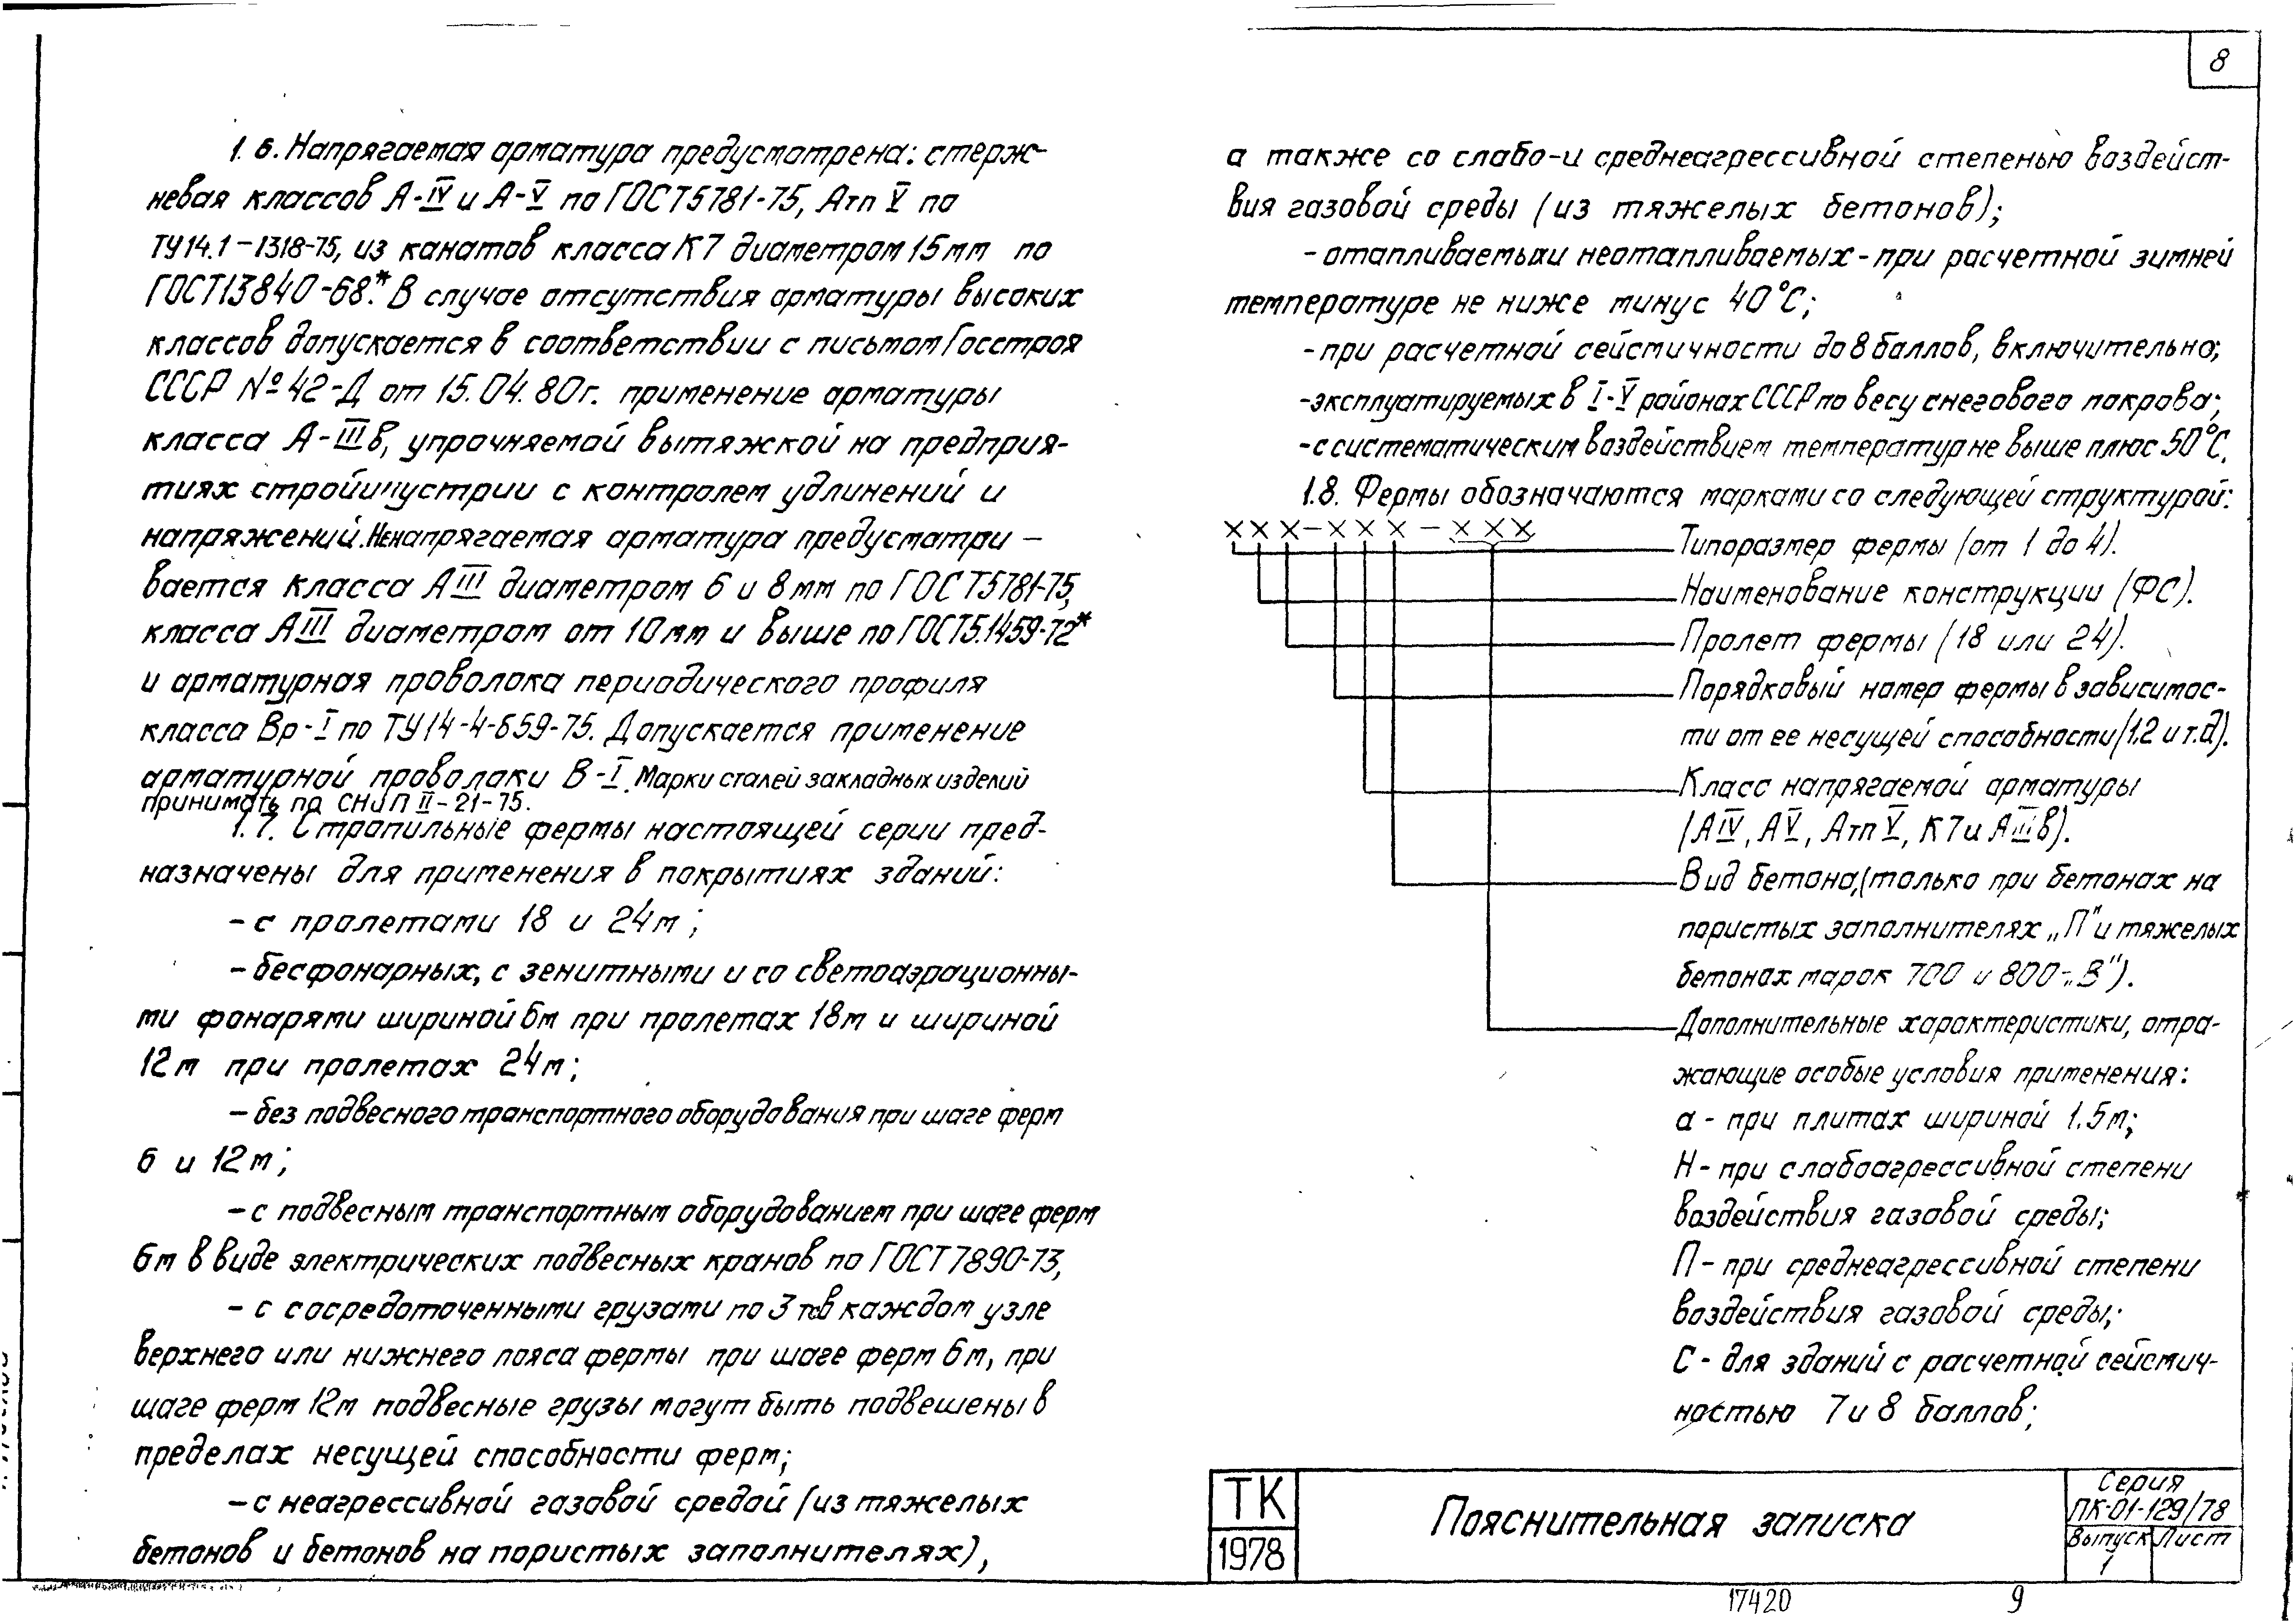 8
1.6. Напрягаемая арматура предусмотрена: стерж-
невая классов А-IV и А-V по ГОСТ5781-75, Атп V по
ТУ14.1-1318-75, из канатов класса К7 диаметром 15мм по
ГОСТ13840-68.* В случае отсутствия арматуры высоких
классов допускается в соответствии с письмом Госстроя
СССР №42-Д от 15.04.80г. применение арматуры
класса А-IIIв, упрочняемой вытяжкой на предприя-
тиях стройиндустрии с контролем удлинений и
напряжений. Ненапрягаемая арматура предусматри-
вается класса АIII диаметром 6 и 8мм по ГОСТ5781-75,
класса АIII диаметром от 10мм и выше по ГОСТ5.1459-72*
и арматурная проволока периодического профиля
класса Вр-I по ТУ14-4-659-75. Допускается применение
арматурной проволоки В-I. Марки сталей закладных изделий
принимать по СНиП II-21-75.
1.7. Стропильные фермы настоящей серии пред-
назначены для применения в покрытиях зданий:
- с пролетами 18 и 24м;
- бесфонарных, с зенитными и со светоаэрационны-
ми фонарями шириной 6м при пролетах 18м и шириной
12м при пролетах 24м;
- без подвесного транспортного оборудования при шаге ферм
6 и 12м;
- с подвесным транспортным оборудованием при шаге ферм
6м в виде электрических подвесных кранов по ГОСТ7890-73,
- с сосредоточенными грузами по 3тс в каждом узле
верхнего или нижнего пояса фермы при шаге ферм 6м, при
шаге ферм 12м подвесные грузы могут быть подвешены в
пределах несущей способности ферм;
- с неагрессивной газовой средой (из тяжелых
бетонов и бетонов на пористых заполнителях),
а также со слабо- и среднеагрессивной степенью воздейст-
вия газовой среды (из тяжелых бетонов);
- отапливаемых и неотапливаемых - при расчетной зимней
температуре не ниже минус 40°С;
- при расчетной сейсмичности до 8 баллов, включительно;
- эксплуатируемых в I-V районах СССР по весу снегового покрова;
- с систематическим воздействием температур не выше плюс 50°С.
1.8. Фермы обозначаются марками со следующей структурой:
ххх-ххх-ххх
Типоразмер фермы (от 1 до 4).
Наименование конструкции (ФС).
Пролет фермы (18 или 24).
Порядковый номер фермы в зависимос-
ти от ее несущей способности (1.2 и т.д).
Класс напрягаемой арматуры
(АIV, АV, Атп V, К7 и АIIIв).
Вид бетона, (только при бетонах на
пористых заполнителях „П" и тяжелых
бетонах марок 700 и 800-„В").
Дополнительные характеристики, отра-
жающие особые условия применения:
а - при плитах шириной 1.5м;
Н - при слабоагрессивной степени
воздействия газовой среды;
П - при среднеагрессивной степени
воздействия газовой среды;
С - для зданий с расчетной сейсмич-
ностью 7 и 8 баллов;
ТК
1978
Пояснительная записка
Серия
ПК-01-129/78
Выпуск Лист
1
17420 9